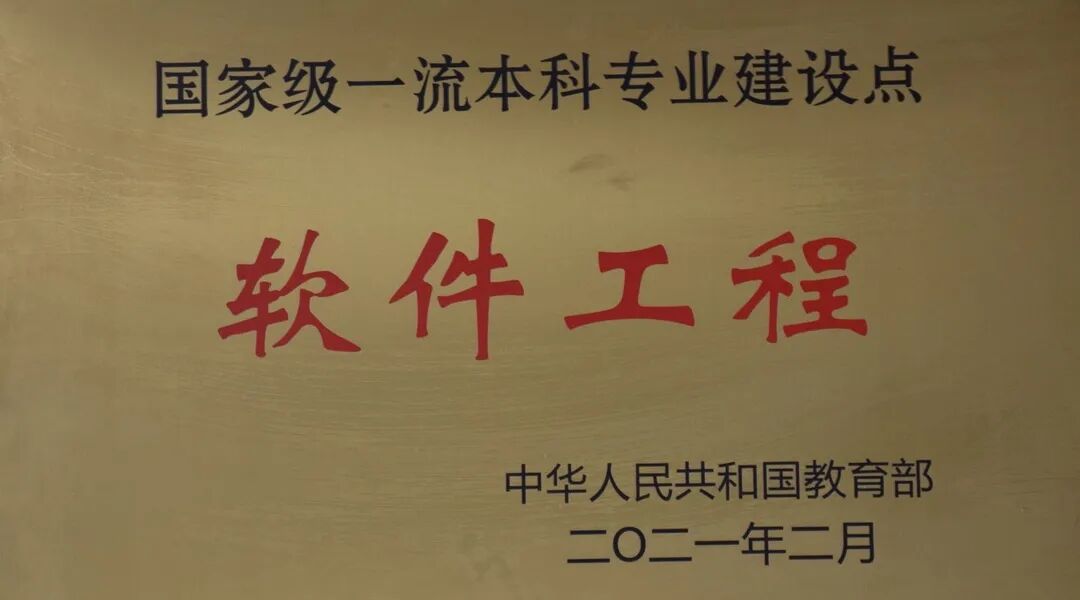 国家级一流本科专业建设点
软件工程
中华人民共和国教育部
二〇二一年二月